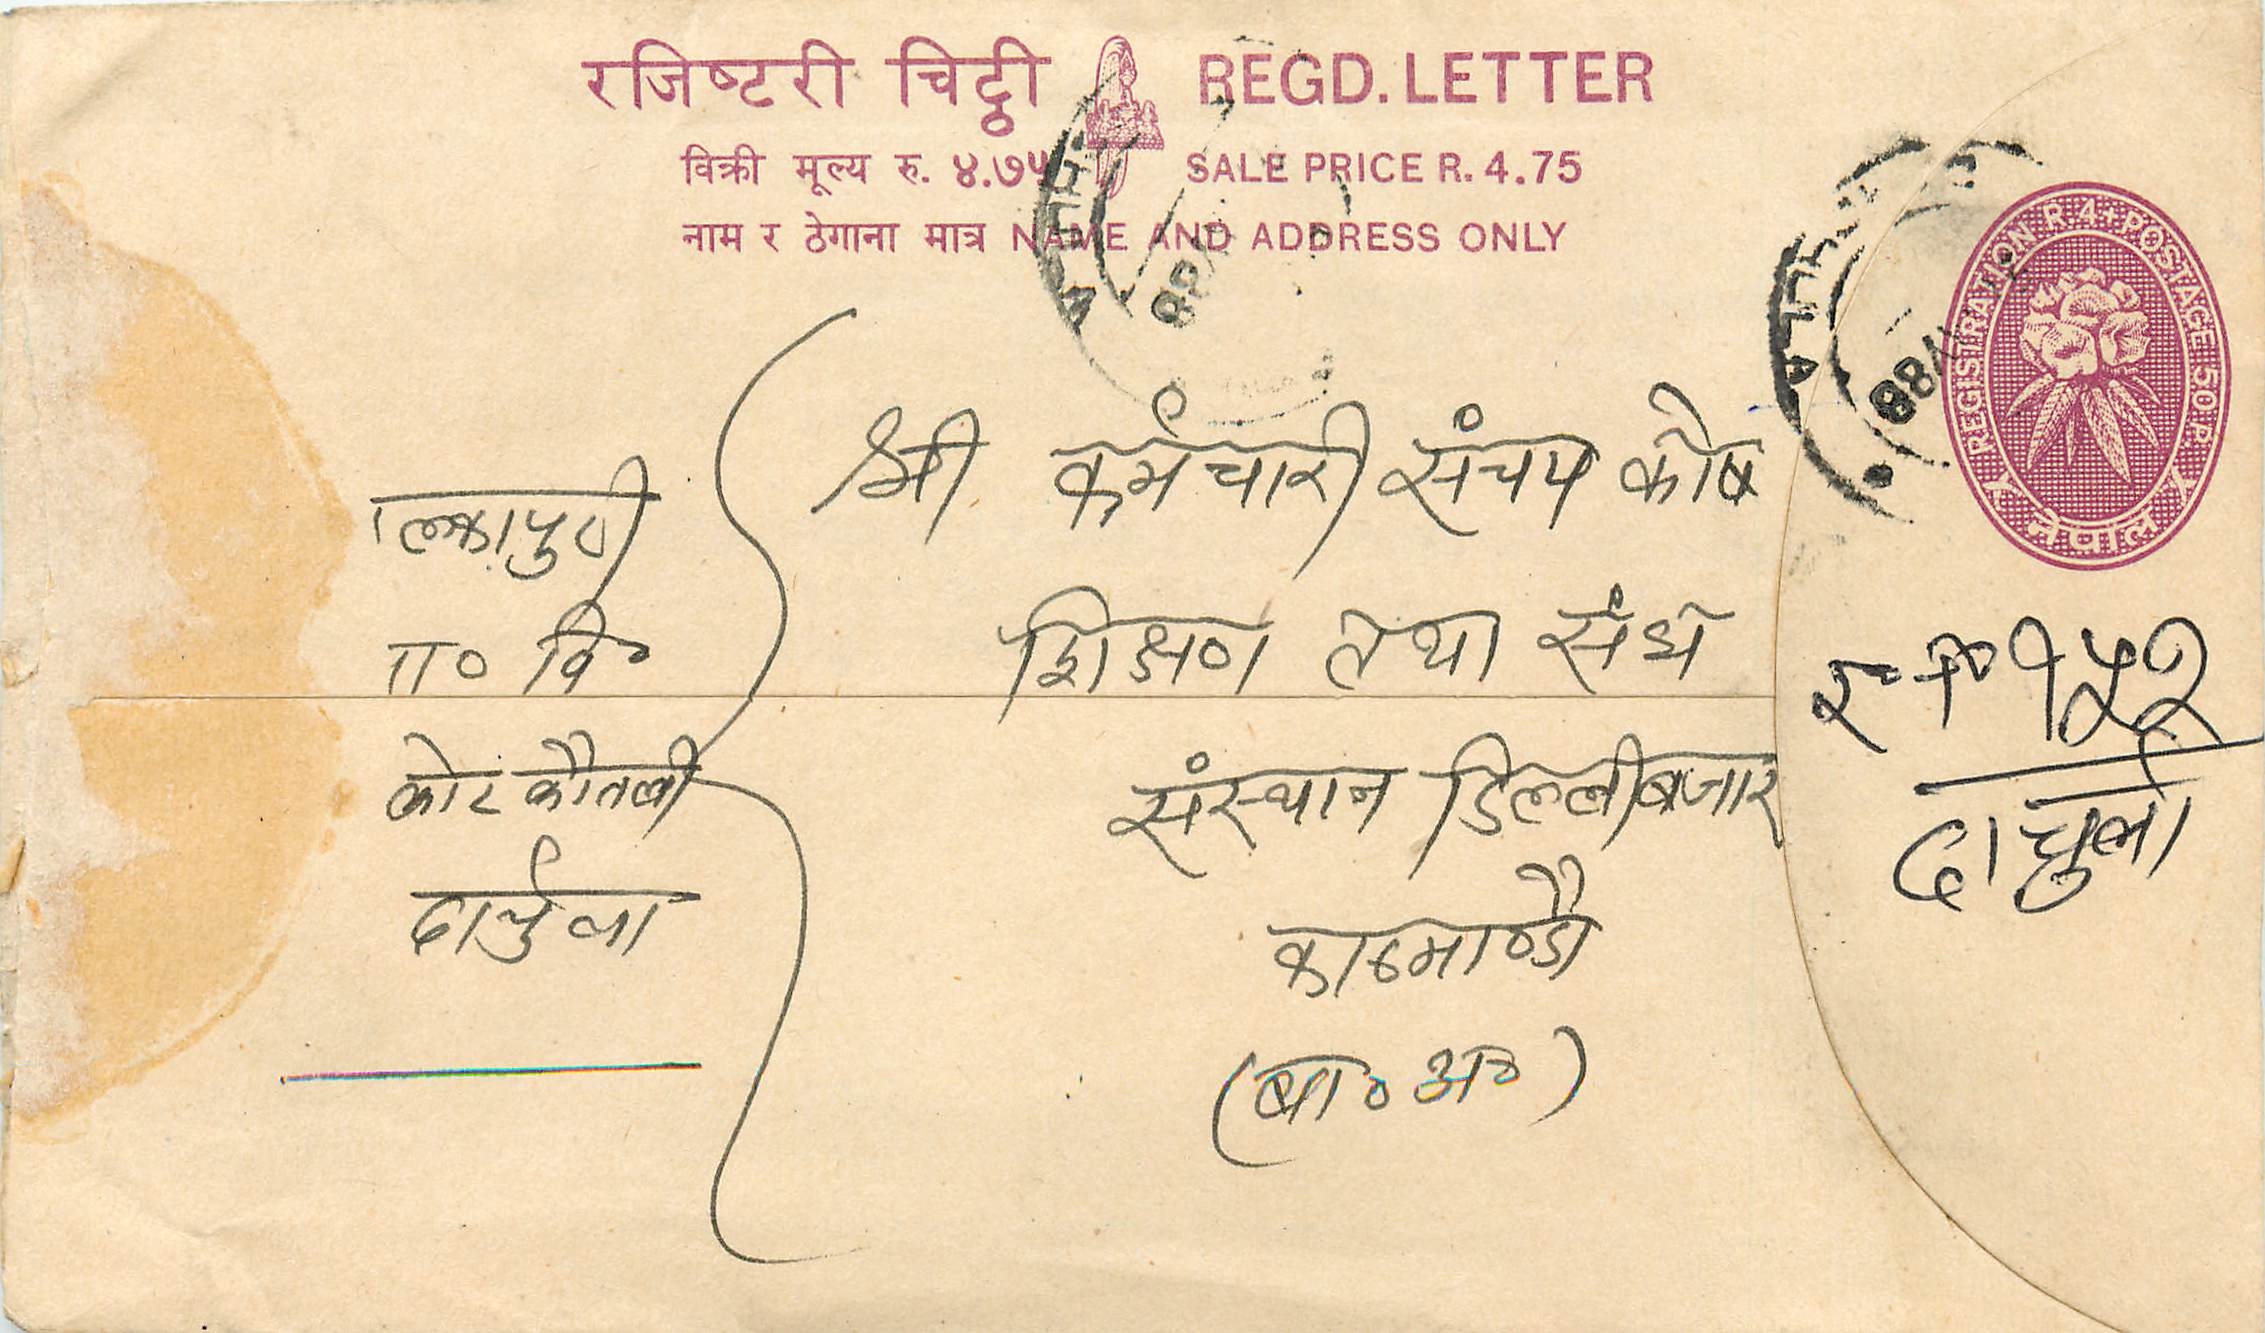 रजिष्टरी चिट्ठी REGD. LETTER
विक्री मूल्य रु. ४.७५ SALE PRICE R. 4.75
नाम र ठेगाना मात्र NAME AND ADDRESS ONLY
REGISTRATION R.4+POSTAGE 50 P.
नेपाल
श्री कर्मचारी संचय कोष
शिक्षण तथा संघ
संस्थान डिल्लीबजार
काठमाण्डौ
(बा० अ०)
मा० वि०
दार्चुला
१५२
दार्चुला